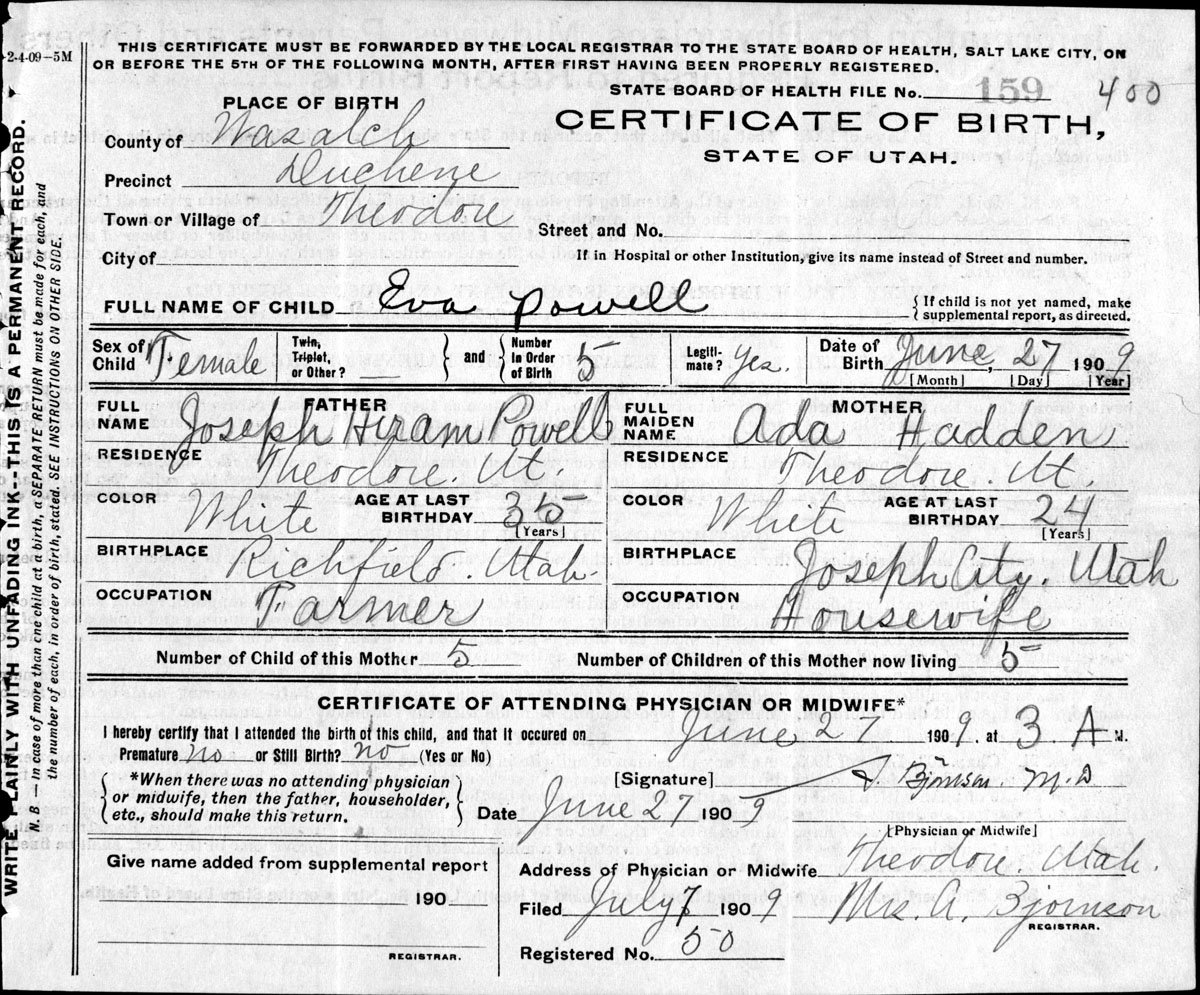 2-4-09-5M
THIS CERTIFICATE MUST BE FORWARDED BY THE LOCAL REGISTRAR TO THE STATE BOARD OF HEALTH, SALT LAKE CITY, ON
OR BEFORE THE 5TH OF THE FOLLOWING MONTH, AFTER FIRST HAVING BEEN PROPERLY REGISTERED.
STATE BOARD OF HEALTH FILE No. 159 400
PLACE OF BIRTH
CERTIFICATE OF BIRTH,
STATE OF UTAH.
County of Wasatch
Precinct Duchene
Town or Village of Theodore
Street and No.
City of
If in Hospital or other Institution, give its name instead of Street and number.
FULL NAME OF CHILD Eva Powell
{ If child is not yet named, make
supplemental report, as directed.
Sex of Child Female
Twin, Triplet, or Other?
} and {
Number in Order of Birth 5
Legiti-mate? Yes.
Date of Birth June, 27 1909
[Month] [Day] [Year]
FATHER
FULL NAME Joseph Hiram Powell
RESIDENCE Theodore. Ut
COLOR White
AGE AT LAST BIRTHDAY 35
[Years]
BIRTHPLACE Richfield. Utah.
OCCUPATION Farmer
MOTHER
FULL MAIDEN NAME Ada Hadden
RESIDENCE Theodore. Ut
COLOR White
AGE AT LAST BIRTHDAY 24
[Years]
BIRTHPLACE Joseph City. Utah
OCCUPATION Housewife
Number of Child of this Mother 5
Number of Children of this Mother now living 5
CERTIFICATE OF ATTENDING PHYSICIAN OR MIDWIFE*
I hereby certify that I attended the birth of this child, and that it occured on June 27 1909. at 3 A M.
Premature no or Still Birth? no (Yes or No)
{ *When there was no attending physician
or midwife, then the father, householder,
etc., should make this return. }
[Signature] Bjornson. M.D
Date June 27 1909
[Physician or Midwife]
Give name added from supplemental report
190
REGISTRAR.
Address of Physician or Midwife Theodore. Utah.
Filed July 7 1909 Mrs. A. Bjornson
REGISTRAR.
Registered No. 50
WRITE PLAINLY WITH UNFADING INK-THIS IS A PERMANENT RECORD.
N. B.—In case of more than one child at a birth, a SEPARATE RETURN must be made for each, and
the number of each, in order of birth, stated. SEE INSTRUCTIONS ON OTHER SIDE.